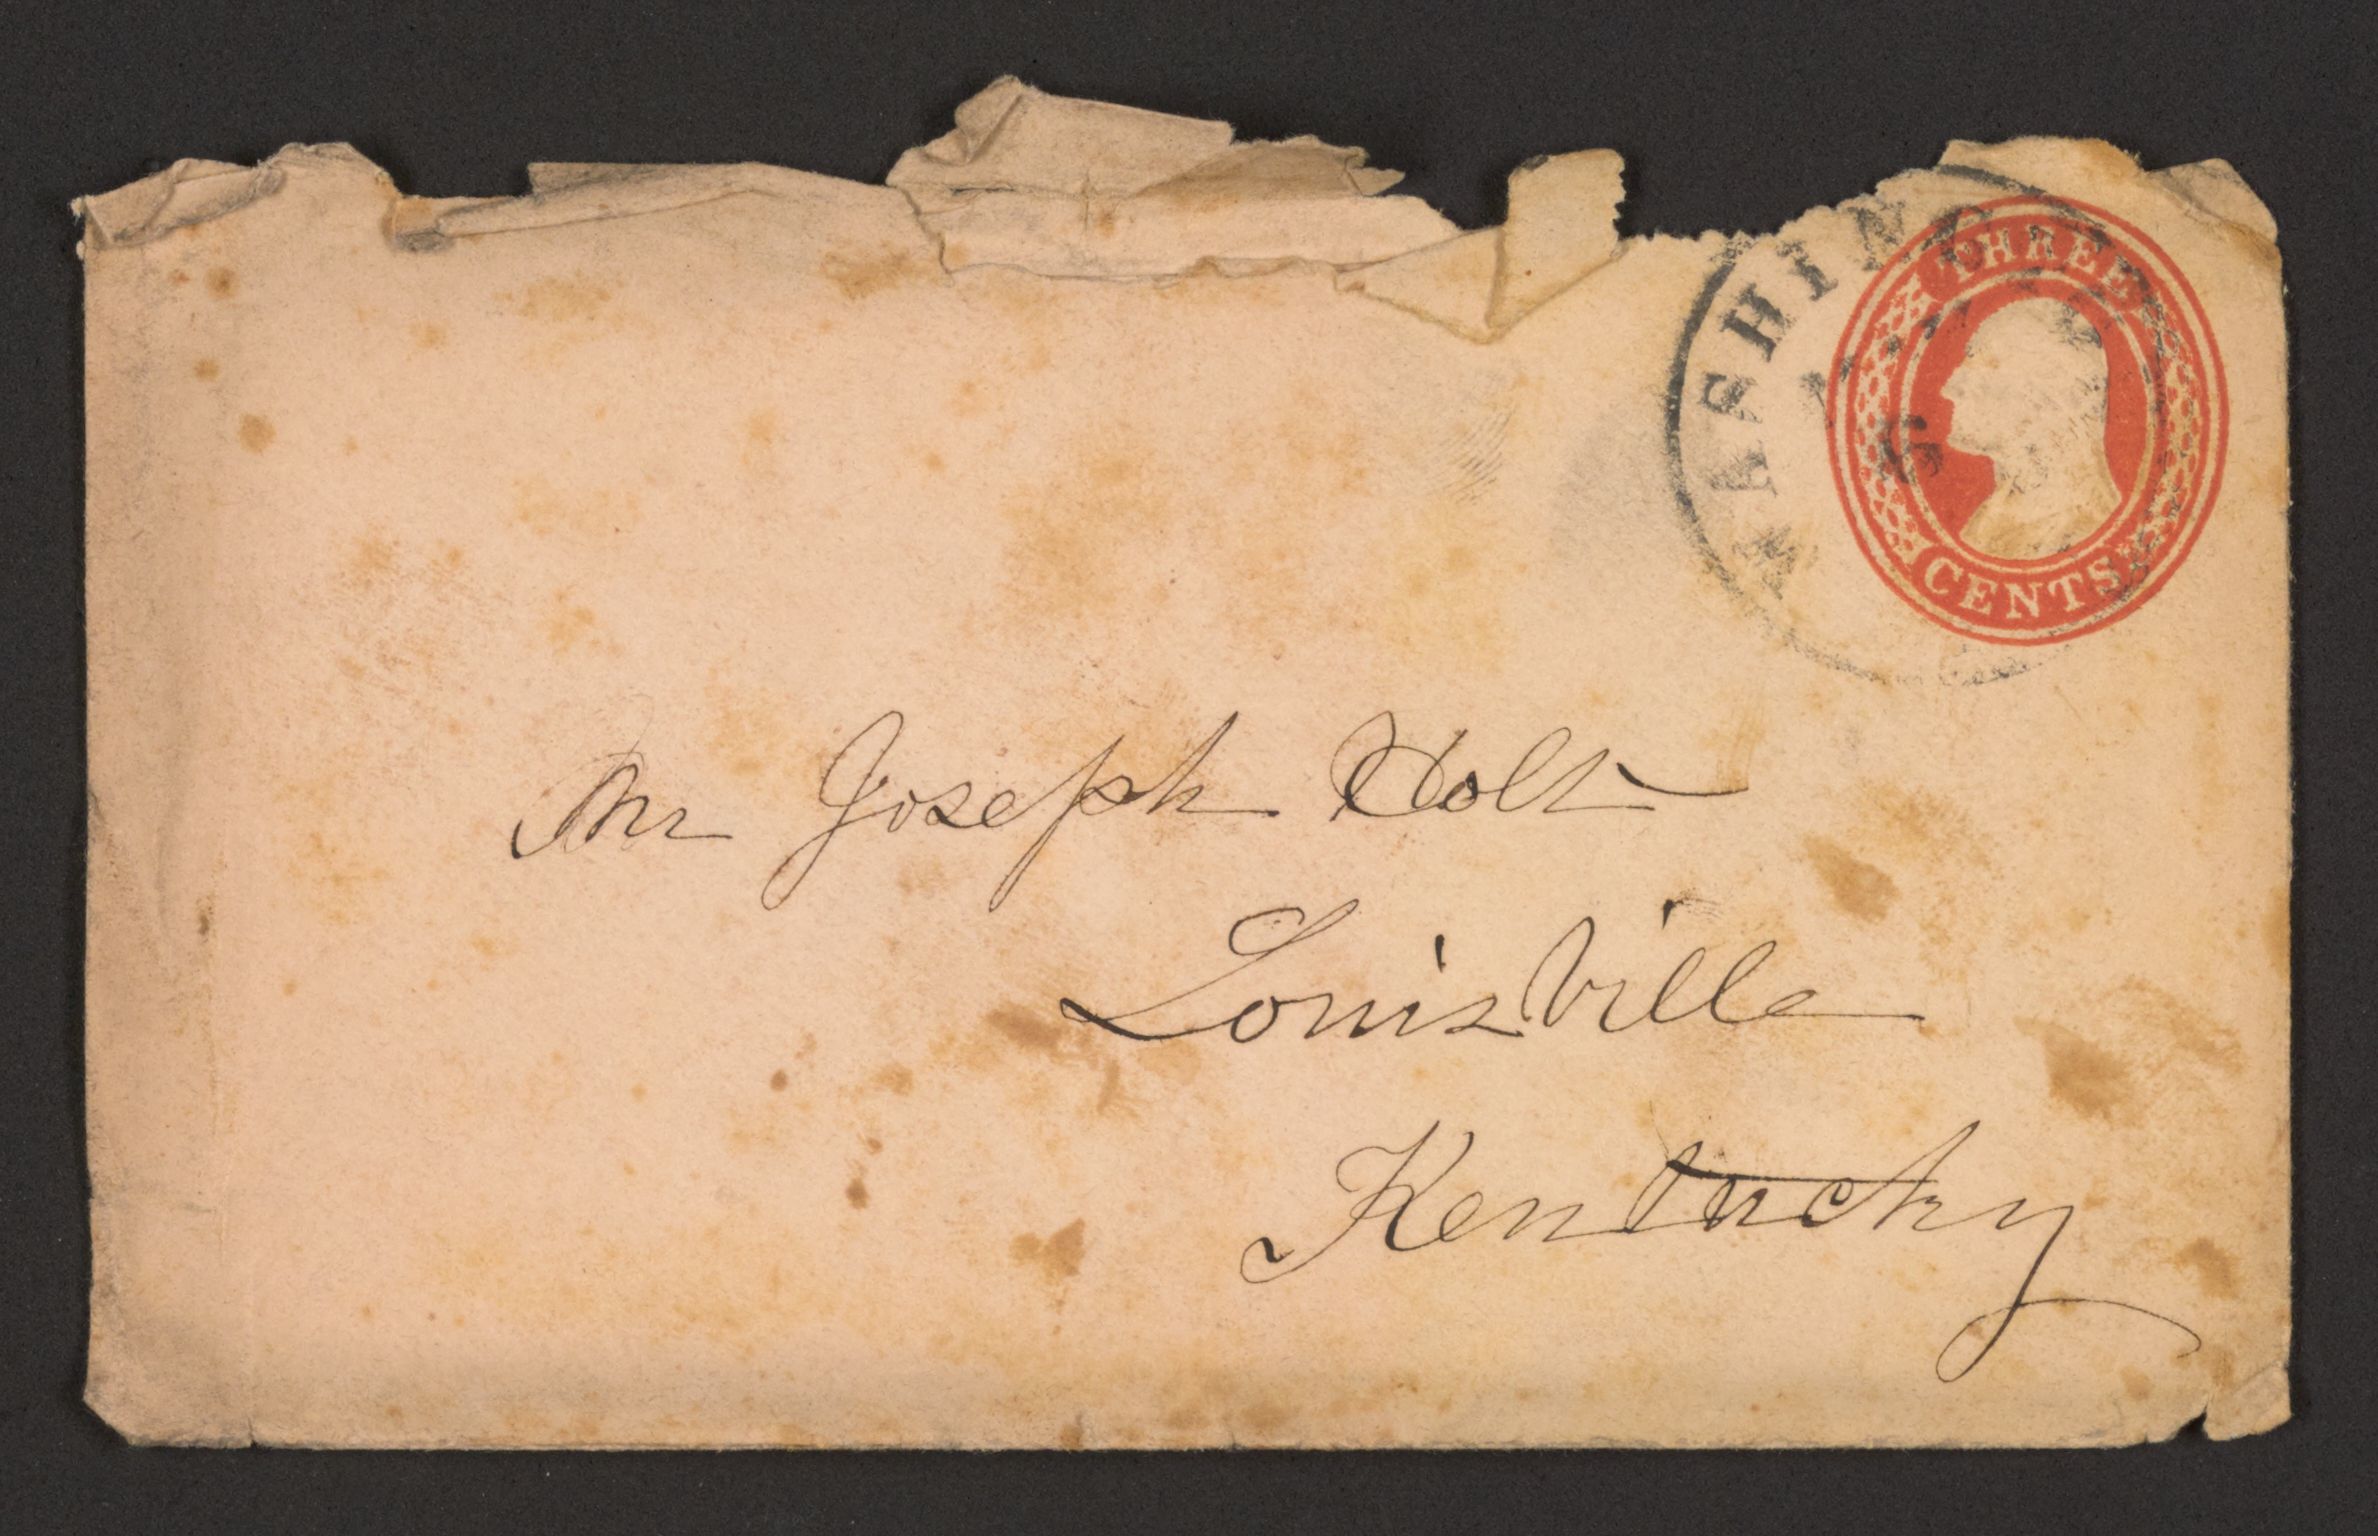 WASHING
THREE
6
CENTS
Mr Joseph Holt
Louisville
Kentucky